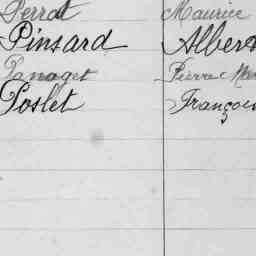 Perrot Maurice
Pinsard Albert
Panaget Pierre Mar
Poslet François